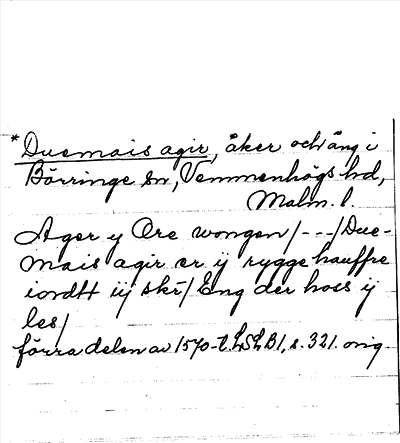 *Duemais agir, åker och äng i
Börringe sn, Vemmenhögs hd,
Malm. l.
Ager y Ore wongen /---/ Due-
mais agir er ij rygge hauffre
iordtt iij skr / Eng der hoss ij
les /
förra delen av 1570-t. LSLB1, s. 321. orig.